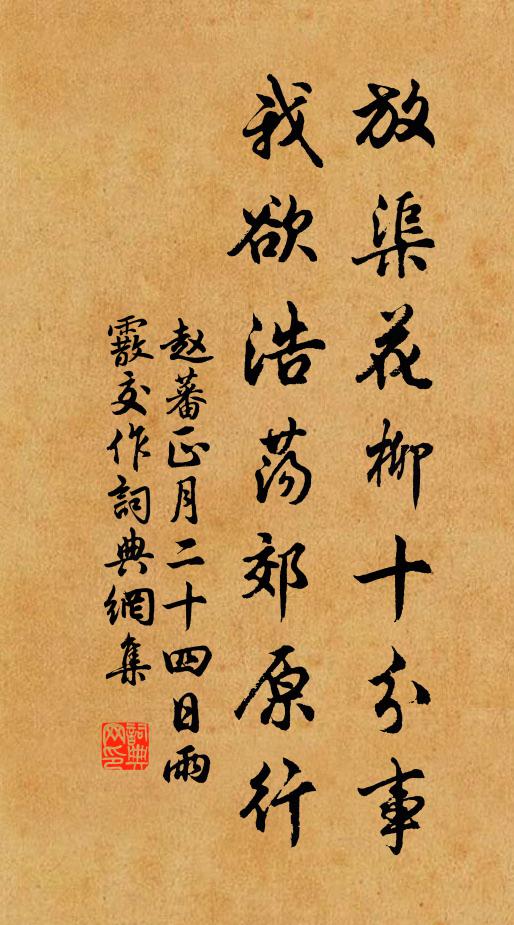 放渠花柳十分事
我欲浩荡郊原行
赵蕃正月二十四日雨
霰交作詞典網集
詞典網印